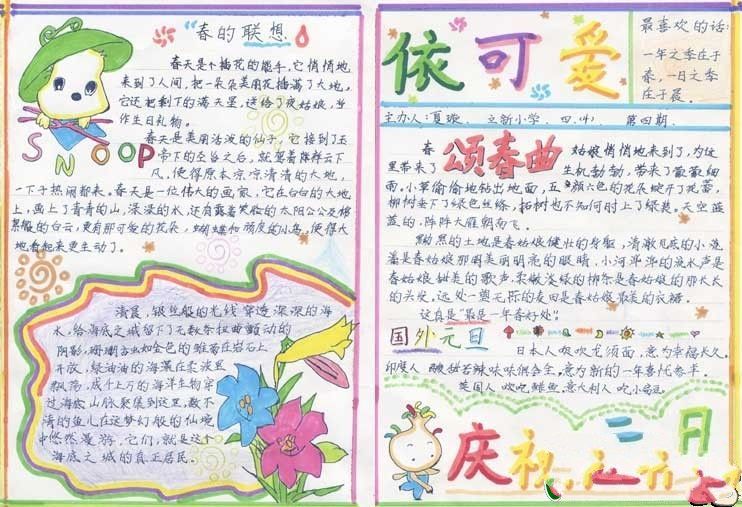 "春的联想"
春天是个插花的能手,它悄悄地
来到了人间,把一朵朵美丽花插满了大地。
它还把剩下的满天星,送给了夜姑娘,当
作生日礼物。
春天是美丽活泼的仙子,它接到玉
帝下的圣旨之后,就驾着祥云下
凡,使得原本凉凉清清的大地,
一下子热闹起来。春天是一位伟大的画家,它在白白的大地
上,画上了青青的山,深深的水,还有露着笑脸的太阳公公及
的白云,更有那可爱的花朵,蝴蝶和顽皮的小鸟,使得大
地看起来更生动了。
SNOOP
清晨,银丝般的光线穿透深深的海
水,给海底之城留下了无数条扭曲颤动的
阴影,珊瑚虫如金色的雏菊在岩石上
开放,绿油油的海藻在柔波里
飘荡,成千上万的海洋生物穿
过海底山脉聚集到这里,数不
清的鱼儿在这梦幻般的仙境
中悠然漫游,它们,就是这个
海底之城的真正居民。
依可爱
最喜欢的话:
一年之季在于
春,一日之季
在于晨。
主办人:夏璇、立新小学、四.(4) 第四期.
颂春曲
春 姑娘悄悄地来到了,为这
里带来了 生机勃勃,带来了微微细
雨。小草偷偷地钻出地面,五颜六色的花朵绽开了花蕾,
柳树垂下了绿色丝绦,柘树也不知何时上了绿装。天空蓝
蓝的,阵阵大雁朝南飞。
黝黑的土地是春姑娘健壮的身躯,清澈见底的小
是春姑娘那明美丽明亮的眼睛,小河潺潺的流水声是
春姑娘甜美的歌声,柔嫩浅绿的柳条是春姑娘的那长长
的头发,远处一望无际的麦田是春姑娘最美的衣裙。
这真是"最是一年春好处"!
国外元旦
日本人吸吹龙须面,意为幸福长久。
印度人 酸甜苦辣味味俱全,意为新的一年喜忧参半。
英国人吹吃鲤鱼,意大利人吃小扁豆。
庆祝元旦